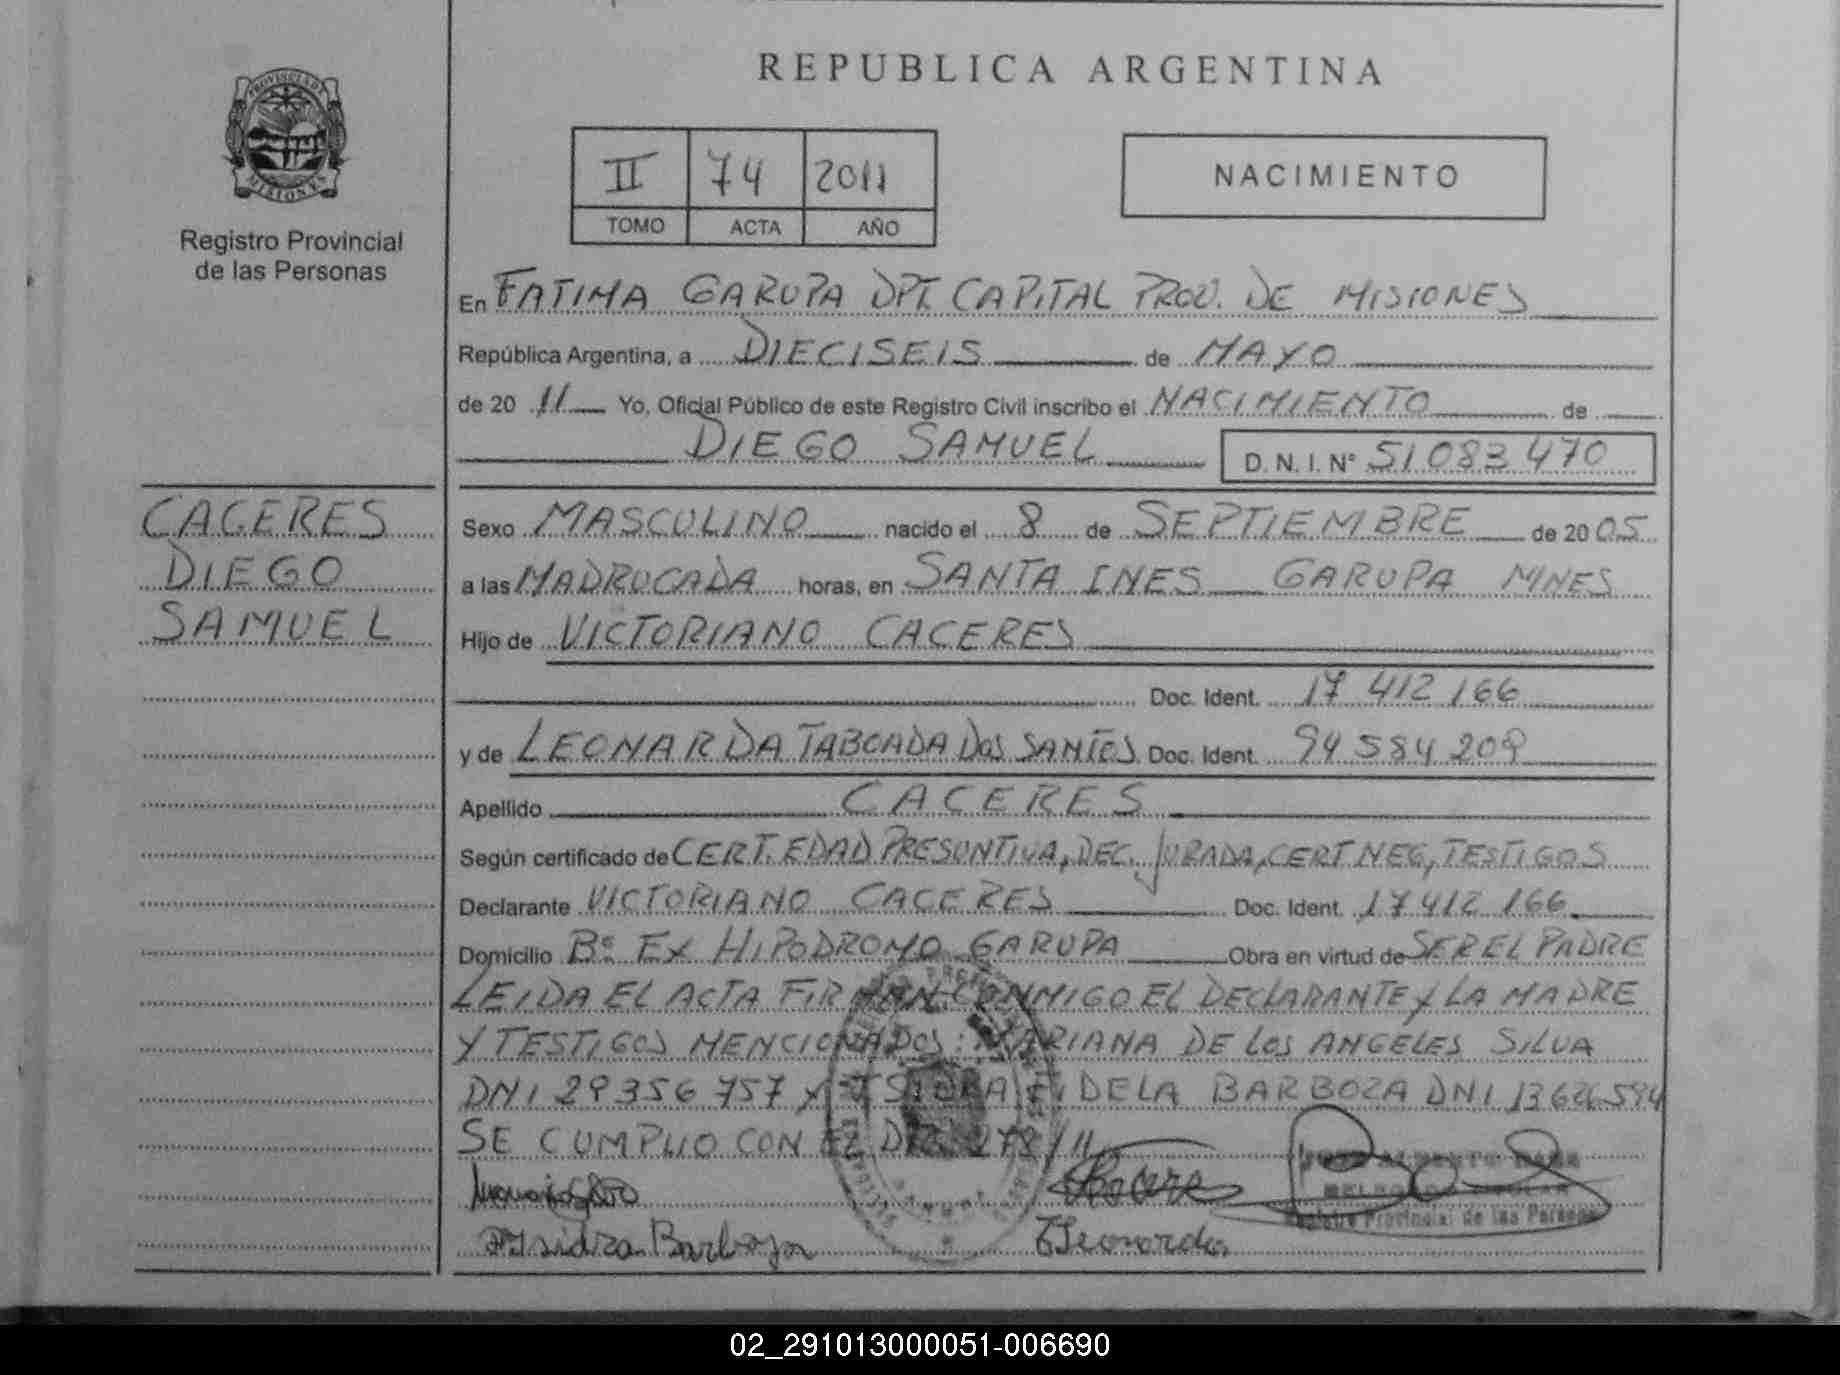 PROVINCIA DE
MISIONES
Registro Provincial
de las Personas
CACERES
DIEGO
SAMUEL
REPUBLICA ARGENTINA
II 74 2011
TOMO ACTA AÑO
NACIMIENTO
En FATIMA GARUPA DPT. CAPITAL PROV. DE MISIONES
República Argentina, a DIECISEIS de MAYO
de 2011 Yo, Oficial Público de este Registro Civil inscribo el NACIMIENTO de
DIEGO SAMUEL D. N. I. N° 51 083 470
Sexo MASCULINO nacido el 8 de SEPTIEMBRE de 2005
a las MADRUGADA horas, en SANTA INES GARUPA MNES
Hijo de VICTORIANO CACERES
Doc. Ident. 17 412 166
y de LEONARDA TABOADA DOS SANTOS Doc. Ident. 94 584 209
Apellido CACERES
Según certificado de CERT. EDAD PRESUNTIVA, DEC. JURADA, CERT NEG, TESTIGOS
Declarante VICTORIANO CACERES Doc. Ident. 17 412 166
Domicilio B° EX HIPODROMO GARUPA Obra en virtud de SER EL PADRE
LEIDA EL ACTA FIRMAN CONMIGO EL DECLARANTE Y LA MADRE
Y TESTIGOS MENCIONADOS: MARIANA DE LOS ANGELES SILVA
DNI 29 356 757 Y ISIDRA FIDELA BARBOZA DNI 13 626 594
SE CUMPLIO CON EL 278/11
Isidra Barboza
Leonarda
Registro Provincial de las Personas
02_291013000051-006690